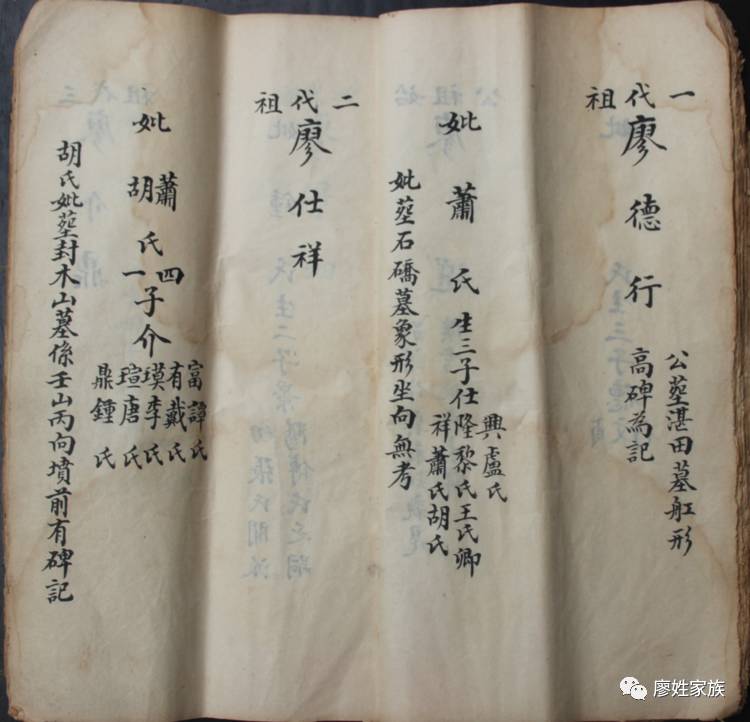 一代祖
廖德行
公塟湛田墓舡形
高碑為記
妣蕭氏生三子仕
興盧氏
隆黎氏王氏卿
祥蕭氏胡氏
妣塟石礄墓象形坐向無考
二代祖
廖仕祥
妣
蕭四
胡氏一子介
富譚氏
有戴氏
李氏
瑄唐氏
鼎鍾氏
胡氏妣塟封木山墓係壬山丙向墳前有碑記
廖姓家族